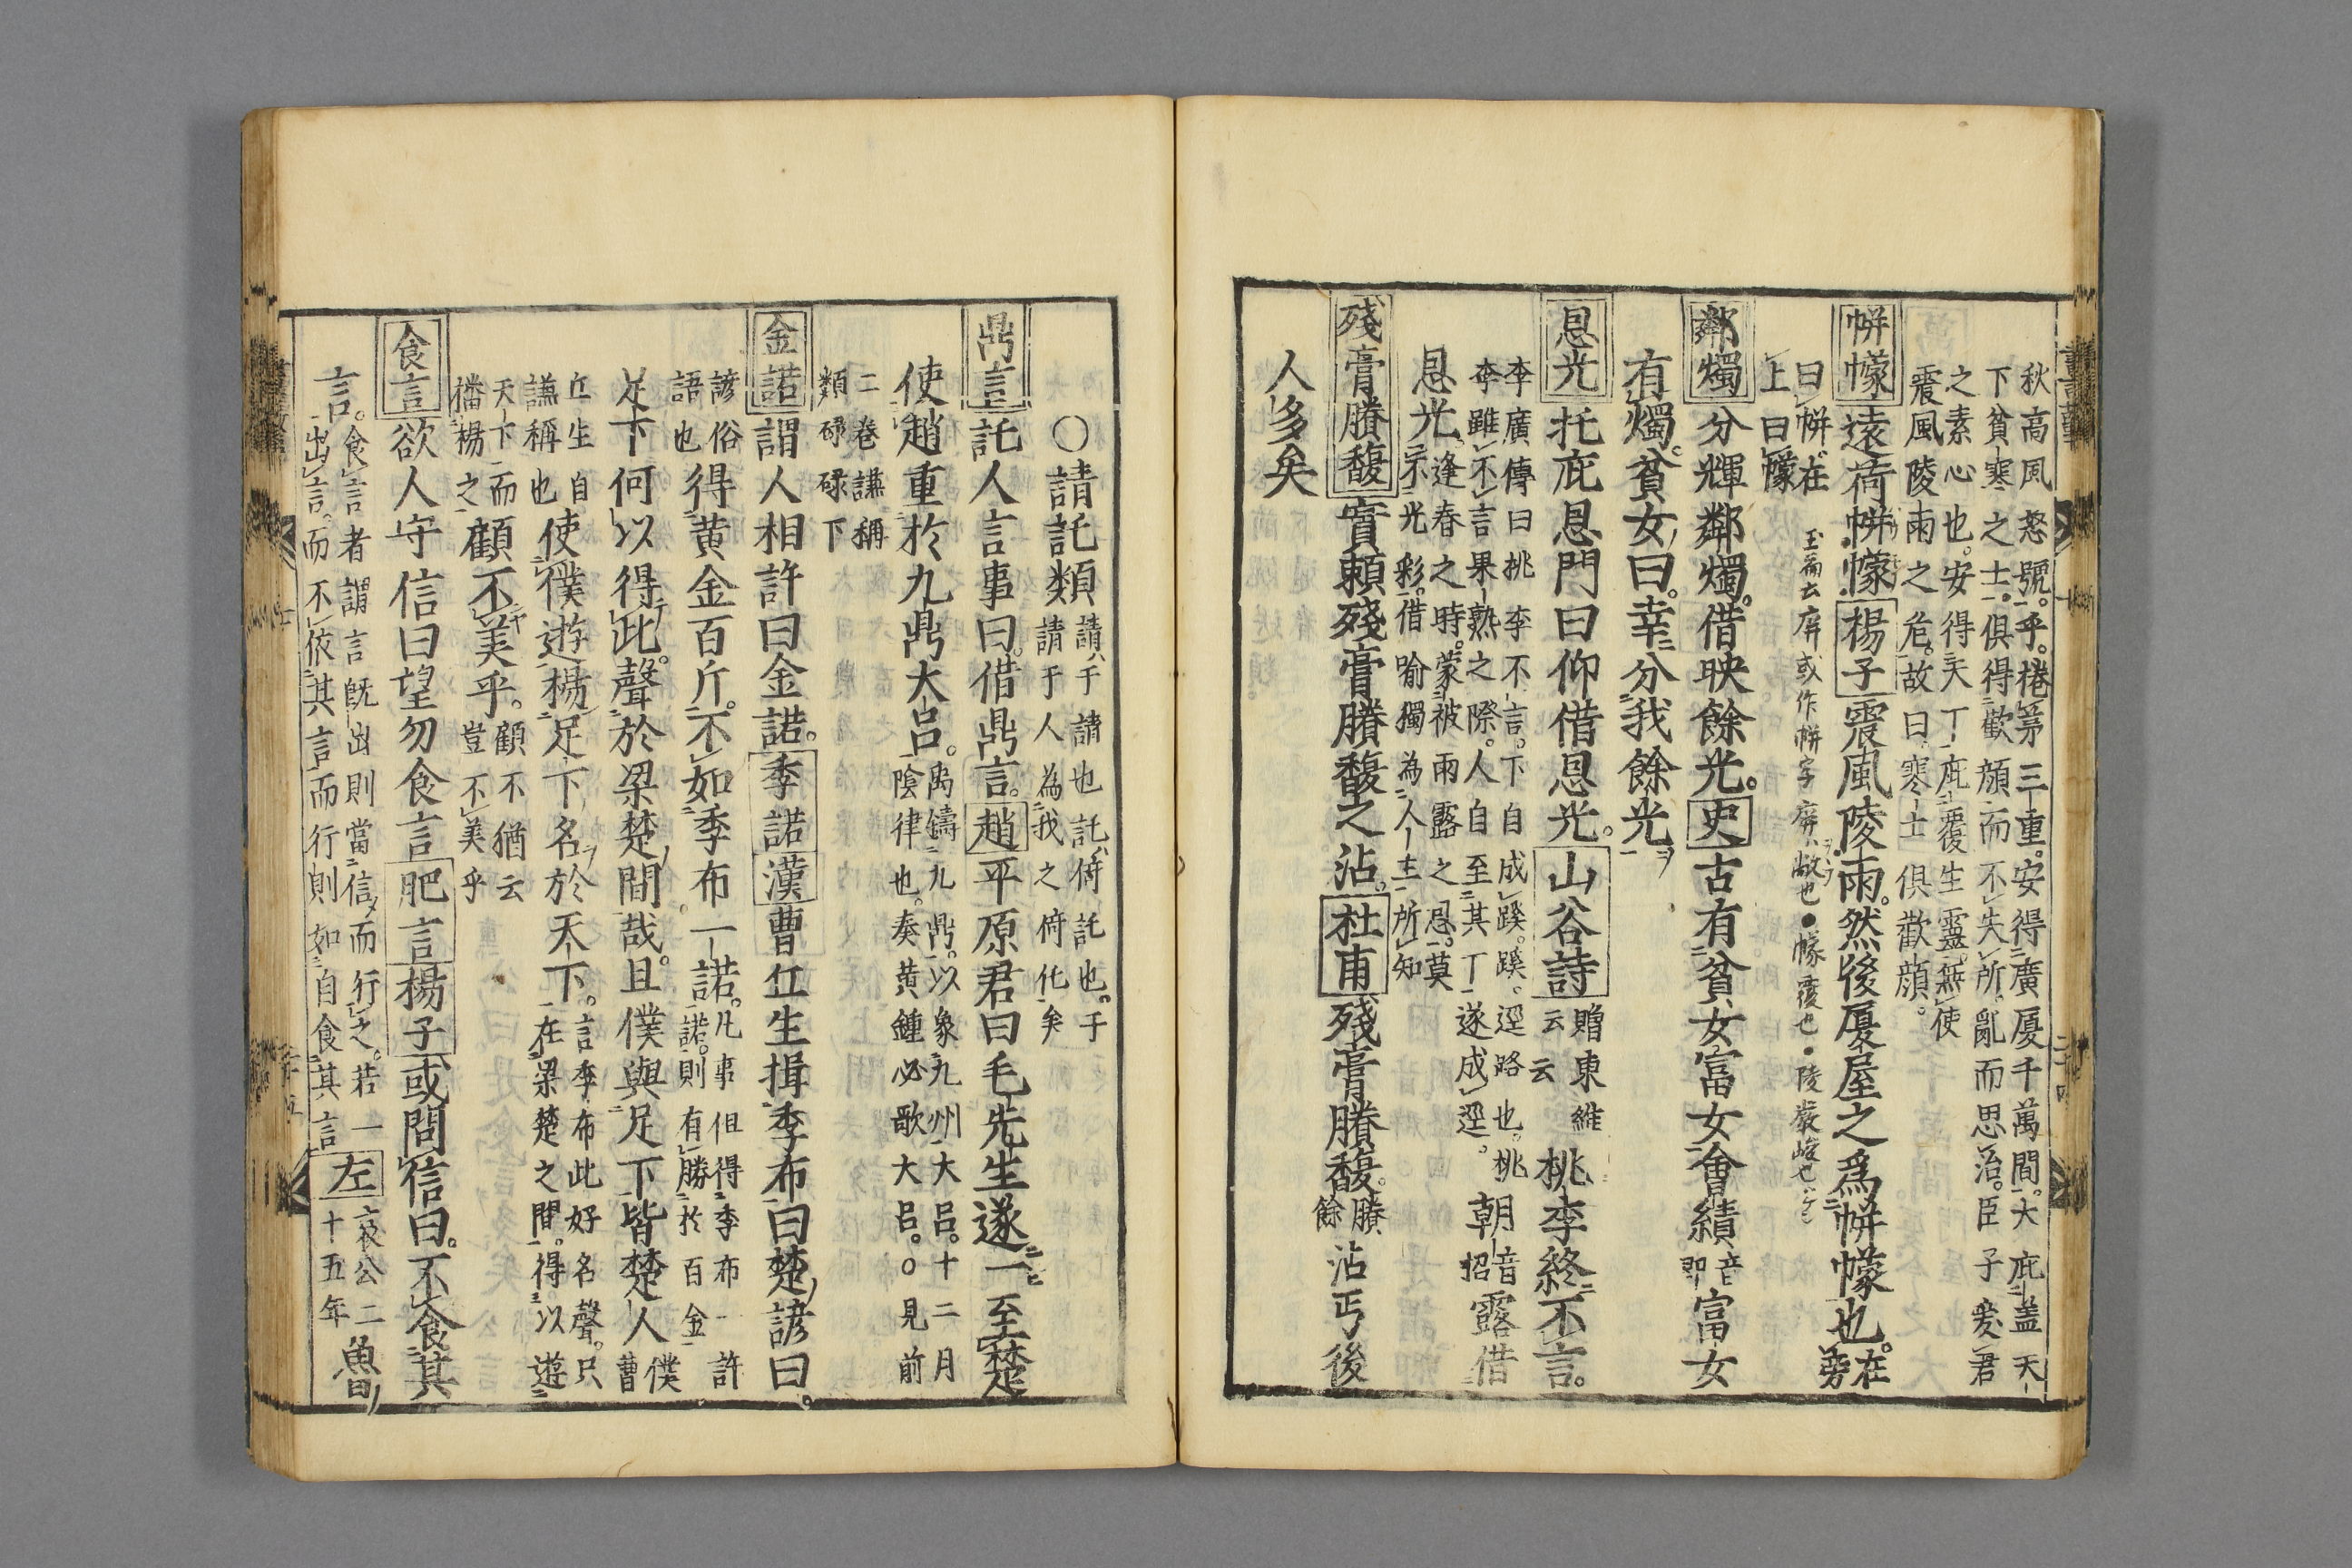 秋高風怒號乎捲茅三重安得廣厦千萬間大庇盖天
下貧寒之士俱得歡顔而不失所亂而思治臣子爰君
之素心也安得夫丁庇覆生靈無使
震風陵雨之危故曰寒士俱歡顔
帡幪遠荷帡幪楊子震風陵雨然後厦屋之爲帡幪也在旁
曰帡在
上曰幪
玉篇云屏或作帡字屏蔽也●幪覆也●陵嚴峻也
鄰燭分輝鄰燭借映餘光史古有貧女富女會績音即富女
有燭貧女曰幸分我餘光
恩光托庇恩門曰仰借恩光山谷詩贈東維云云桃李終不言
李廣傳曰桃李不言下自成蹊蹊逕路也桃
李雖不言果熟之際人自至其丁遂成逕朝音招露借
恩光逢春之時蒙被雨露之恩莫
不光彩借喻獨為人主所知
殘膏賸馥實頼殘膏賸馥之沾杜甫殘膏賸馥賸餘沾丐後
人多矣
○請託類請于請也託倚託也于
請于人為我之倚仛矣
鼎言託人言事曰借鼎言趙平原君曰毛先生遂一至楚
使趙重於九鼎大呂禹鑄九鼎以象九州大呂十二月
陰律也奏黄鍾必歌大呂○見前
二卷謙稱
類碌碌下
金諾謂人相許曰金諾季諾漢曹丘生揖季布曰楚諺曰
諺俗
語也得黄金百斤不如季布一諾凡事但得季布一許
諾則有勝於百金
足下何以得此聲於梁楚間哉且僕與足下皆楚人僕曹
丘生自
謙稱也使僕遊楊足下名於天下言季布此好名聲只
在梁楚之間得以遊
天下而
播楊之顧不美乎顧不猶云
豈不美乎
食言欲人守信曰望勿食言肥言楊子或問信曰不食其
言食言者謂言既出則當信而行之若一
出言而不依其言而行則如自食其言左哀公二
十五年魯